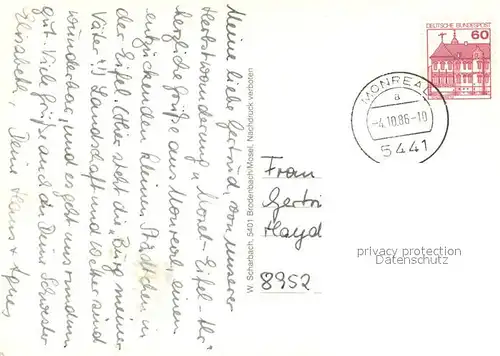 Meine liebe Gertrud, von unserer
Herbstwanderung „Mosel-Eifel-Ahr"
herzliche Grüße aus Monreal, einem
entzückenden kleinen Städtchen in
der Eifel. Hier steht die „Burg meiner
Väter"! Landschaft und Wetter sind
wunderbar, und es geht uns rundum
gut. Viele Grüße auch an Deine Schwester
Elisabeth, Deine Hans + Agnes
W. Scharbach, 5401 Brodenbach/Mosel, Nachdruck verboten
DEUTSCHE BUNDESPOST
60
MONREAL
a
-4.10.86-10
5441
Frau
Gertr
Mayd
8952
privacy protection
Datenschutz